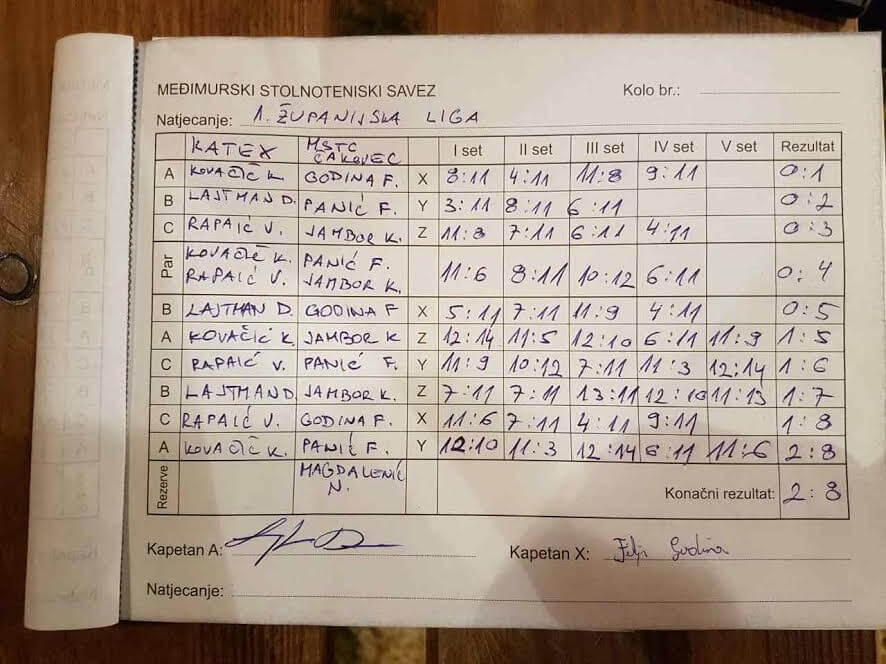 MEĐIMURSKI STOLNOTENISKI SAVEZ Kolo br.:
Natjecanje: 1. ŽUPANIJSKA LIGA
KATEX MSTC ČAKOVEC I set II set III set IV set V set Rezultat
A KOVAČIĆ K. GODINA F. X 8:11 4:11 11:8 9:11 0:1
B LAJTMAN D. PANIĆ F. Y 3:11 8:11 6:11 0:2
C RAPAIĆ V. JAMBOR K. Z 11:8 7:11 6:11 4:11 0:3
Par KOVAČIĆ K. RAPAIĆ V. PANIĆ F. JAMBOR K. 11:6 8:11 10:12 6:11 0:4
B LAJTMAN D. GODINA F X 5:11 7:11 11:9 4:11 0:5
A KOVAČIĆ K. JAMBOR K Z 12:14 11:5 12:10 6:11 11:9 1:5
C RAPAIĆ V. PANIĆ F. Y 11:9 10:12 7:11 11:3 12:14 1:6
B LAJTMAN D. JAMBOR K. Z 7:11 7:11 13:11 12:10 11:13 1:7
C RAPAIĆ V. GODINA F. X 11:6 7:11 4:11 9:11 1:8
A KOVAČIĆ K. PANIĆ F. Y 12:10 11:3 12:14 6:11 11:6 2:8
Rezerve MAGDALENIĆ N. Konačni rezultat: 2:8
Kapetan A: Kapetan X: Godina
Natjecanje: